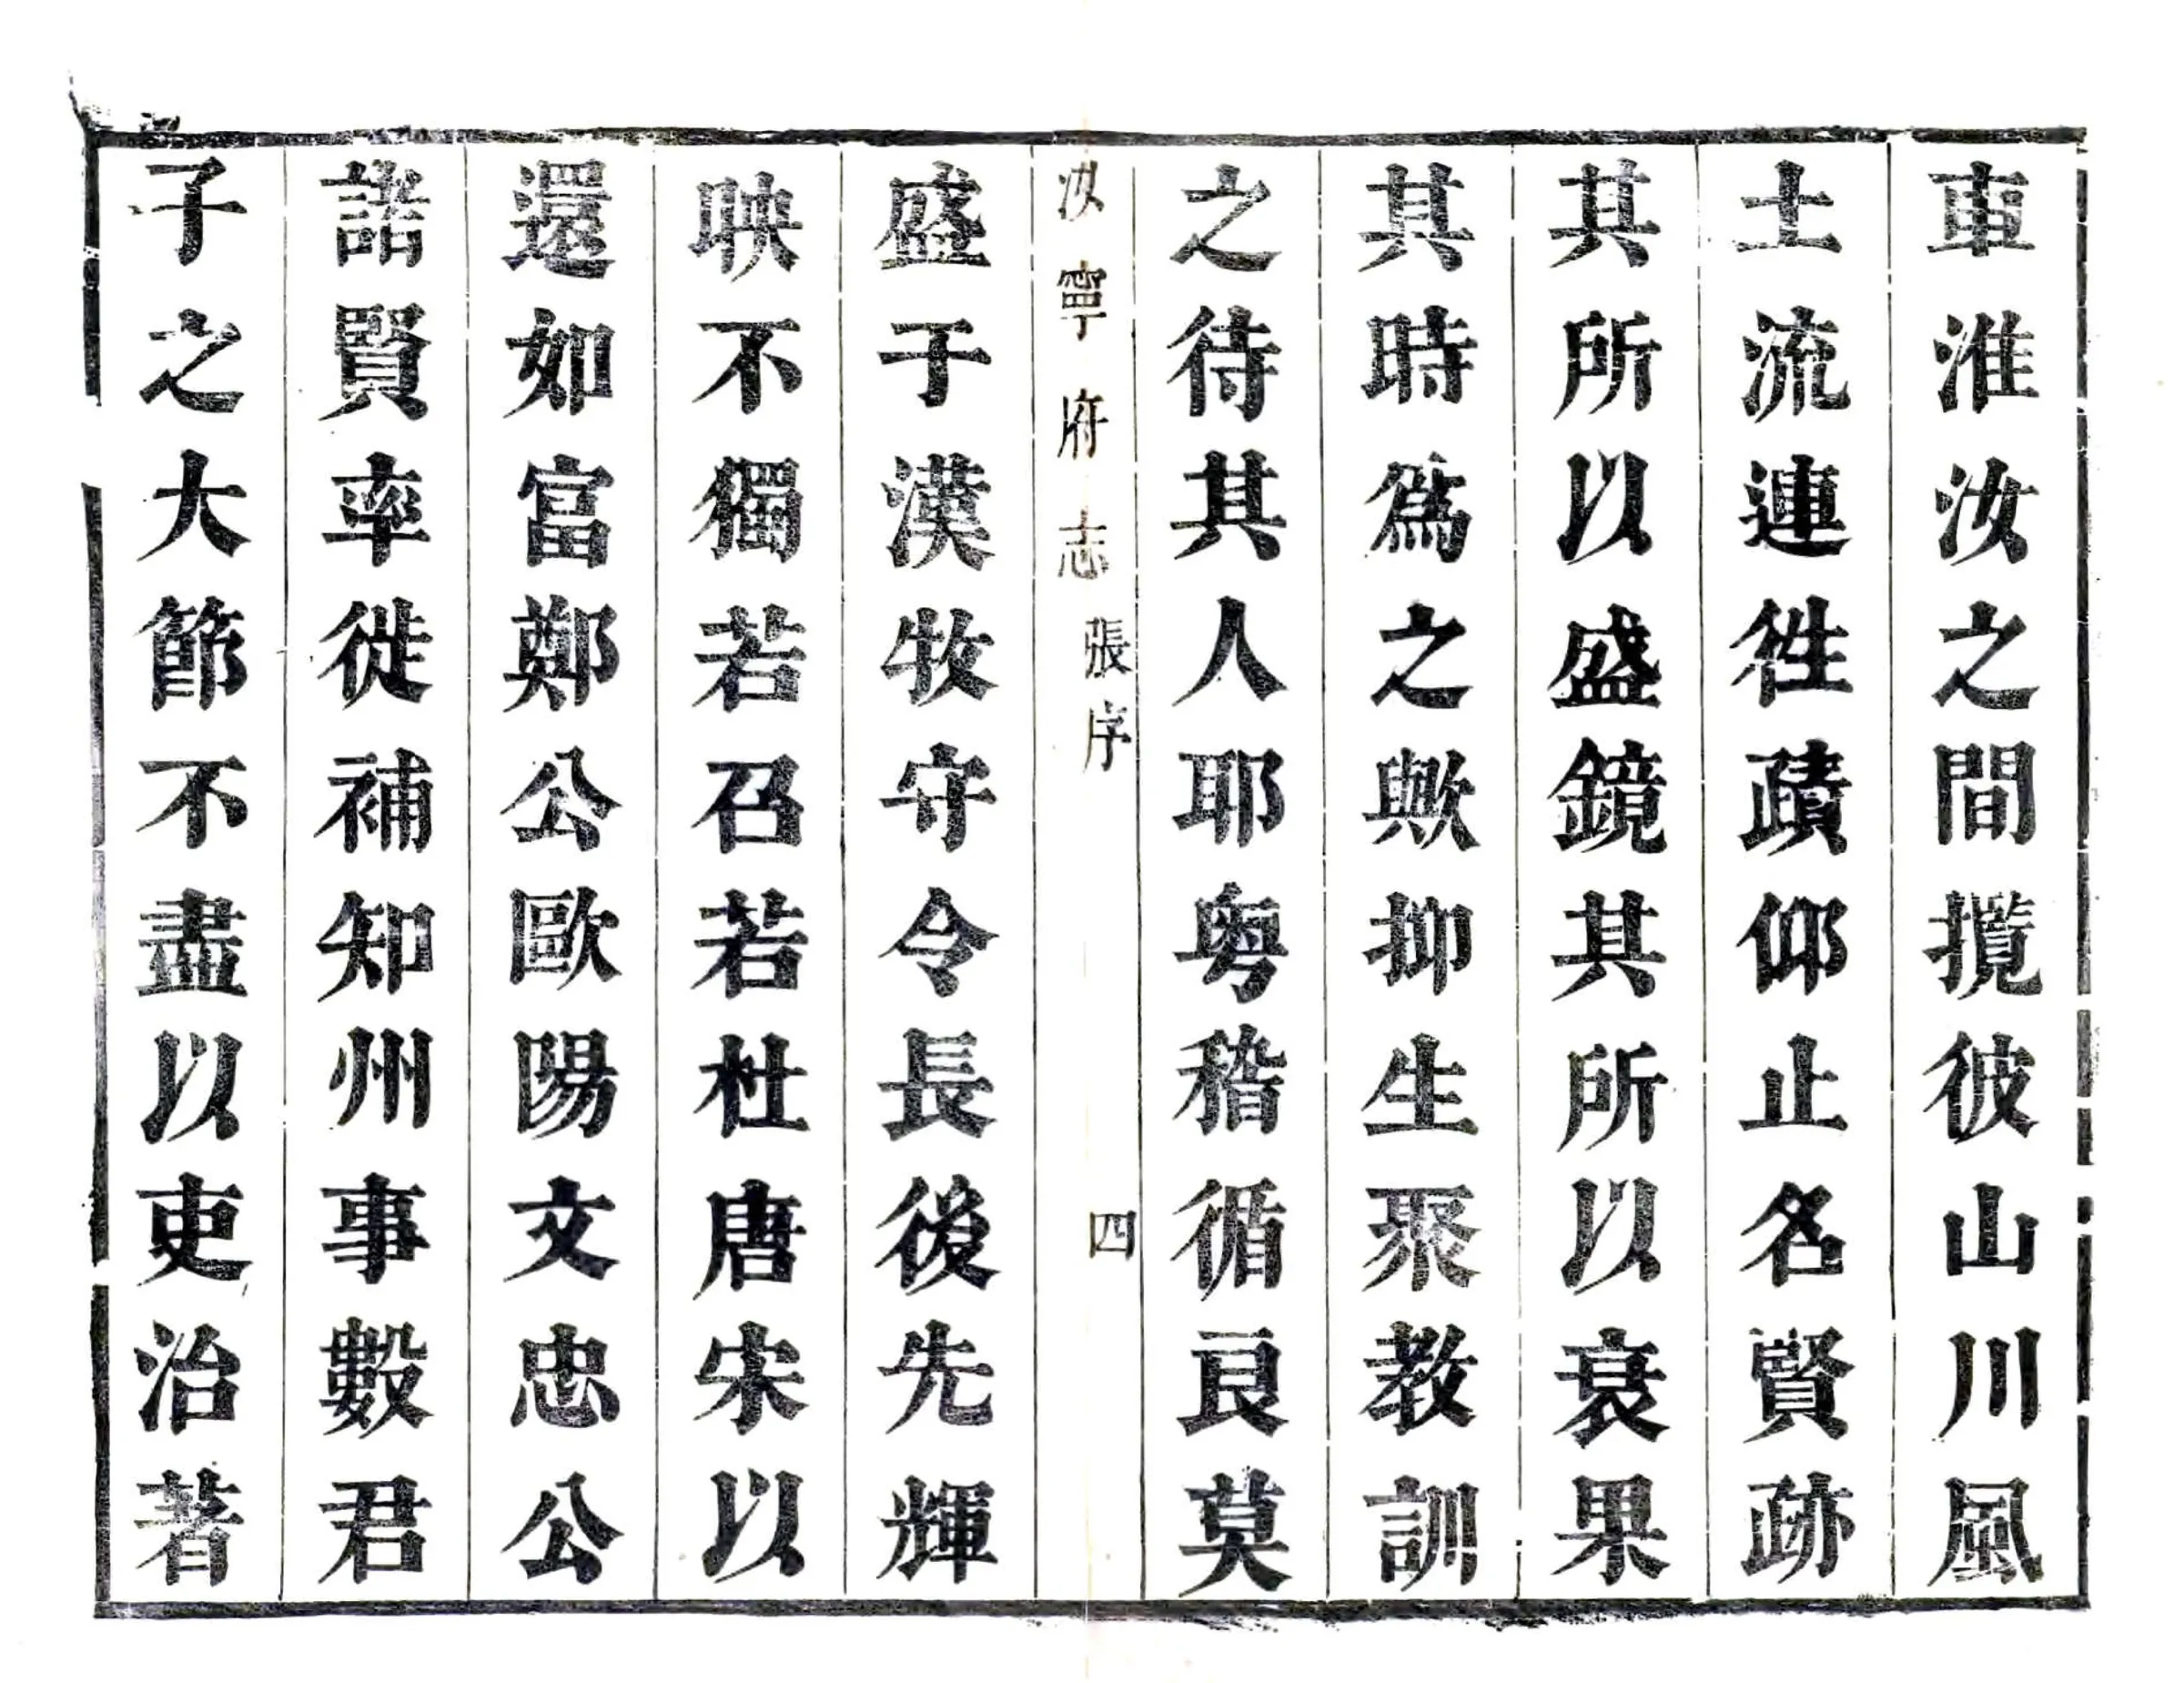 車淮汝之間攬彼山川風
土流連徃蹟仰止名賢跡
其所以盛鏡其所以衰果
其時爲之歟抑生聚教訓
之待其人耶粤稽循良莫
汝寧府志 張序 四
盛于漢牧守令長後先輝
映不獨若召若杜唐宋以
還如富鄭公歐陽文忠公
諸賢率徙補知州事數君
子之大節不盡以吏治著